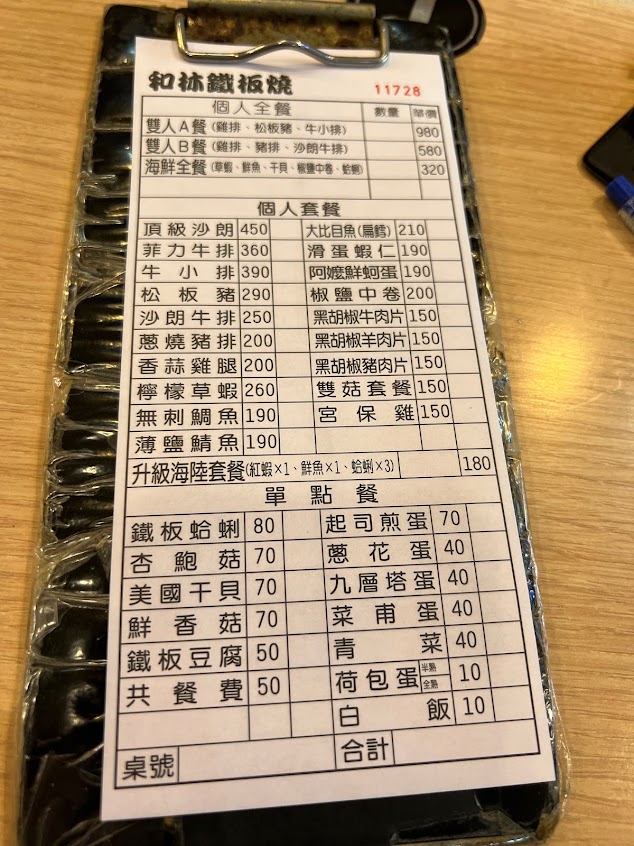 和林鐵板燒 11728
個人全餐 數量 單價
雙人A餐(雞排、松板豬、牛小排) 980
雙人B餐(雞排、豬排、沙朗牛排) 580
海鮮全餐(草蝦、鮮魚、干貝、椒鹽中卷、蛤蜊) 320
個人套餐
頂級沙朗 450 大比目魚(扁鱈) 210
菲力牛排 360 滑蛋蝦仁 190
牛小排 390 阿嬤鮮蚵蛋 190
松板豬 290 椒鹽中卷 200
沙朗牛排 250 黑胡椒牛肉片 150
蔥燒豬排 200 黑胡椒羊肉片 150
香蒜雞腿 200 黑胡椒豬肉片 150
檸檬草蝦 260 雙菇套餐 150
無刺鯛魚 190 宮保雞 150
薄鹽鯖魚 190
升級海陸套餐(紅蝦×1、鮮魚×1、蛤蜊×3) 180
單點餐
鐵板蛤蜊 80 起司煎蛋 70
杏鮑菇 70 蔥花蛋 40
美國干貝 70 九層塔蛋 40
鮮香菇 70 菜甫蛋 40
鐵板豆腐 50 青菜 40
共餐費 50 荷包蛋 半熟 全熟 10
白飯 10
桌號 合計